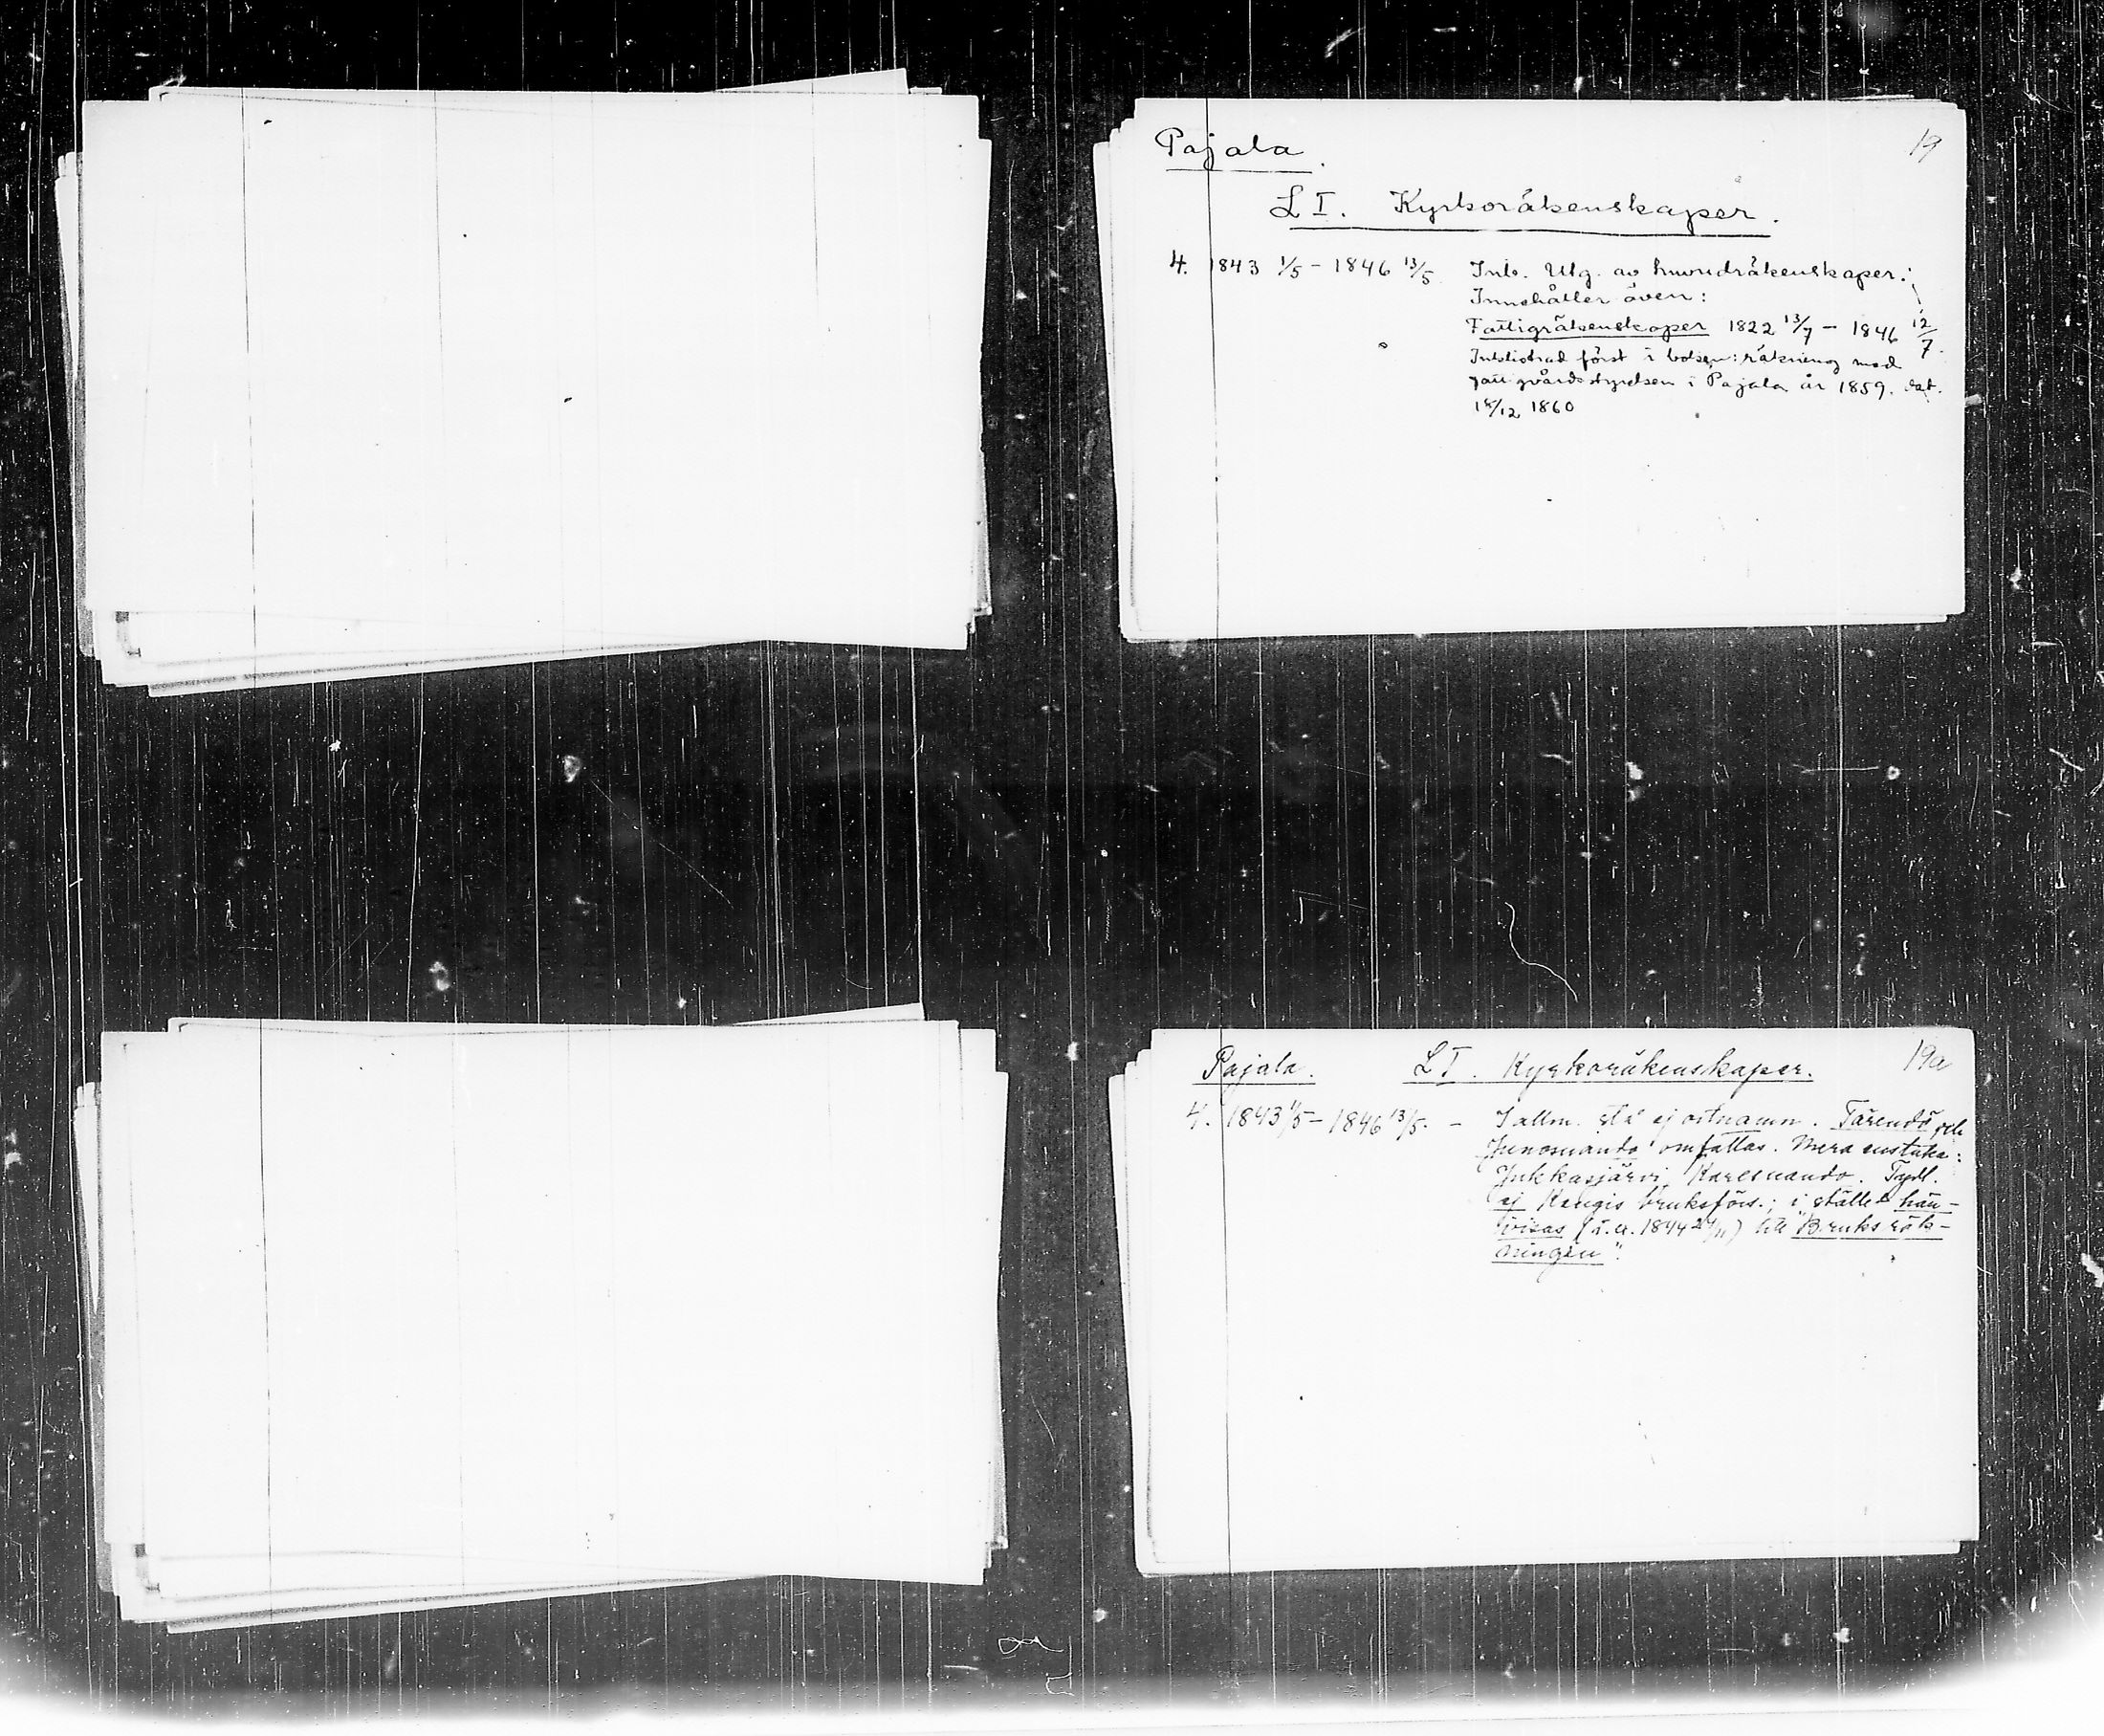 Pajala. 19
L I. Kyrkoräkenskaper.
4. 1843 1/5 - 1846 13/5 Ink. Utg. av huvudräkenskaper;
Innehåller även:
Fattigräkenskaper 1822 13/7 - 1846 12/7.
Inklistrad först i boken: räkning med
fattigvårdsstyrelsen i Pajala år 1859. dat.
/12 1860
Pajala. L I. Kyrkoräkenskaper. 19a
4. 1843 1/5 - 1846 13/5. - I allm. stå ej ortnamn. Tärendö och
Junosuando omfattas. Mera enstaka:
Jukkasjärvi, Karesuando. Tydl.
ej Kengis bruksförs.; i stället hän-
visas (t.ex. 1844 /11) till "Bruksräk-
ningen".